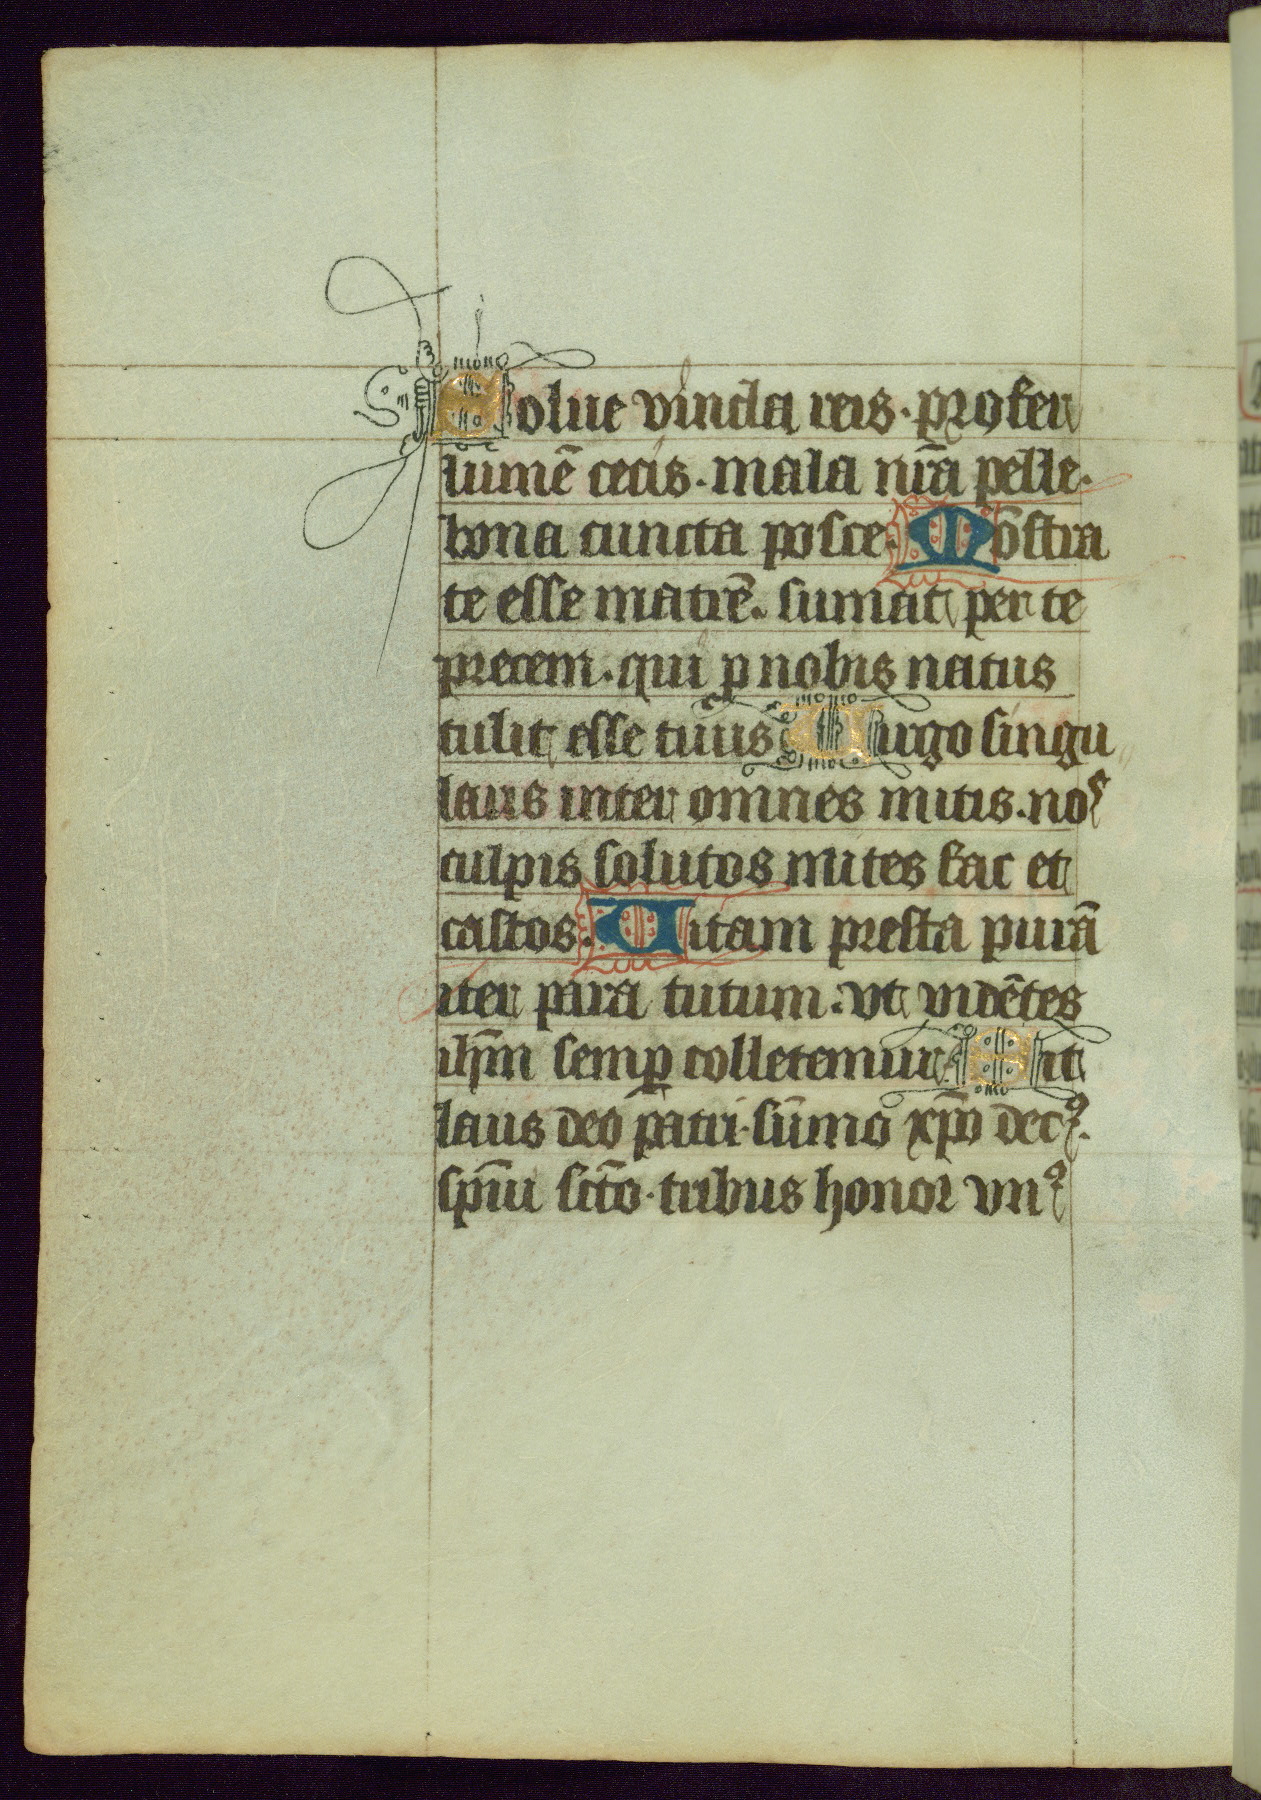 Solue vincla reis. profer
lumē cecis. mala nr̄a pelle.
bona cuncta posce. Mōstra
te esse matrē. sumat per te
precem. qui p nobis natus
tulit esse tuus Uirgo singu
laris inter omnes mitis. nos
culpis solutos mites fac et
castos. Uitam presta purā
iter para tutum. vt vidētes
ih̄m semꝑ colletemur Sit
laus deo patri. sūmo xp̄o decꝰ.
sp̄iui sc̄to. tribus honor vnꝰ